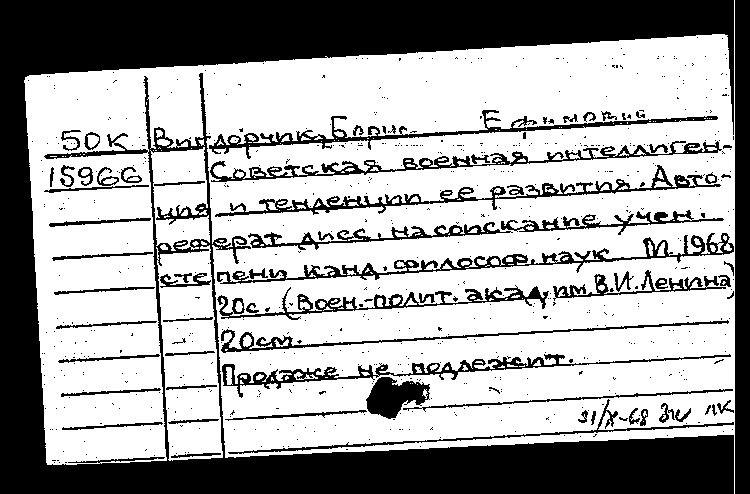 50К Вигдорчик, Борис Ефимович
15966 Советская военная интеллиген-
ция и тенденции ее развития. Авто-
реферат дисс. на соискание учен.
степени канд. философ. наук М., 1968
20с. (Воен.-полит. акад. им. В.И.Ленина)
20см.
Продаже не подлежит.
31/X-68